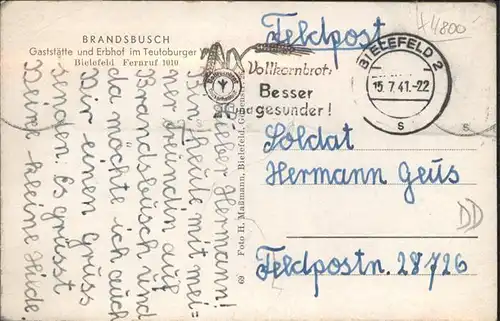 BRANDSBUSCH
Gaststätte und Erbhof im Teutoburger
Bielefeld Fernruf 1010
Lieber Hermann!
Bin heute mit mei-
ner Freundin auf
Brandsbusch und
da möchte ich auch
Dir einen Gruss
senden. Es grüsst
Deine kleine
Foto H. Maßmann, Bielefeld,
69
44800
Feldpost
Vollkornbrot:
Besser
und gesunder!
BIELEFELD 2
15.7.41.-22
s
s
Soldat
Hermann Geus
DD
Feldpostn. 28726